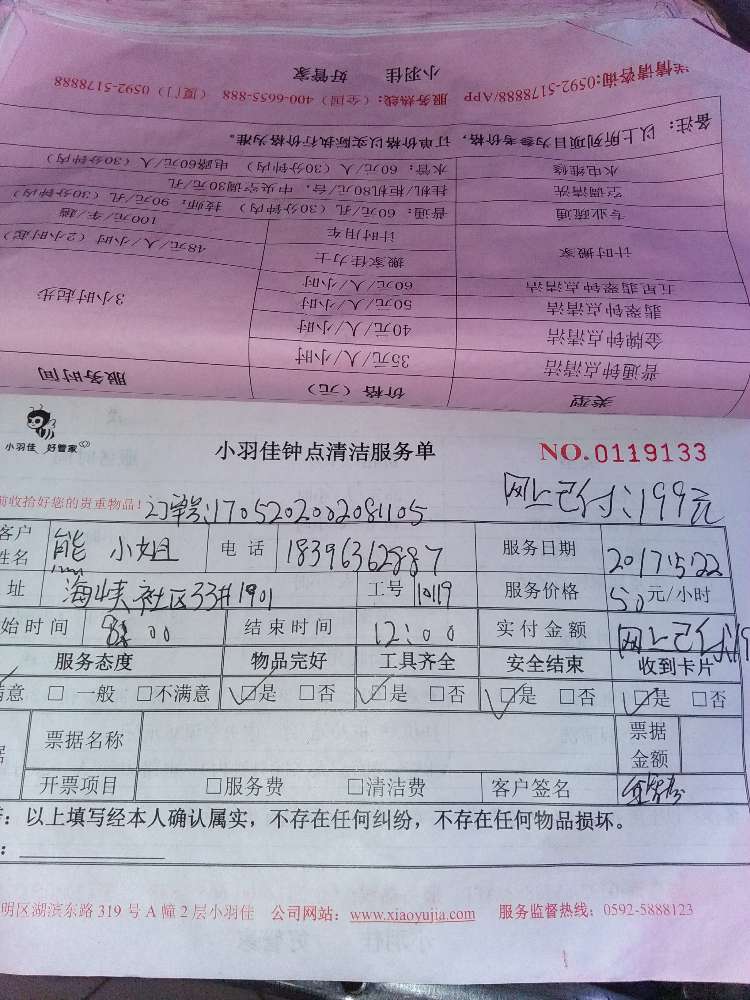 送情请咨询:0592-5178888/APP 服务热线:(全国)400-6655-888 (厦门)0592-5178888
小羽佳 好管家
备注: 以上所列项目为参考价格,订单价格以实际执行价格为准。
水电维修 水管:60元/人(30分钟内) 电路60元/人(30分钟内)
空调清洗 挂机/柜机80元/台,中央空调30元/孔
专业疏通 普通:60元/孔(30分钟内) 技师:90元/孔(30分钟内)
计时搬家 计时用车 100元/车/趟
搬家佳力士 48元/人/小时(2小时起)
五星翡翠钟点清洁 60元/人/小时
翡翠钟点清洁 50元/人/小时 3小时起步
金牌钟点清洁 40元/人/小时
普通钟点清洁 35元/人/小时
类型 价格(元) 服务时间
小羽佳 好管家
小羽佳钟点清洁服务单
NO.0119133
前收拾好您的贵重物品!
订单号:1705202002081105
网上已付:199元
客户姓名 熊小姐 电话 18396362887 服务日期 2017.5.22
址 海峡社区33#1901 工号 10119 服务价格 50元/小时
始时间 8:00 结束时间 12:00 实付金额 网上已付19
服务态度 物品完好 工具齐全 安全结束 收到卡片
意 □ 一般 □不满意 □是 □否 □是 □否 □是 □否 □是 □否
票据名称 票据金额
开票项目 □服务费 □清洁费 客户签名
:以上填写经本人确认属实,不存在任何纠纷,不存在任何物品损坏。
明区湖滨东路 319 号 A 幢 2 层小羽佳 公司网站:www.xiaoyujia.com 服务监督热线:0592-5888123
1